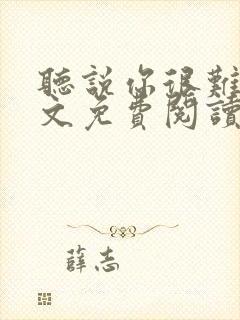 聽說你很難
文免費閱讀
薛志